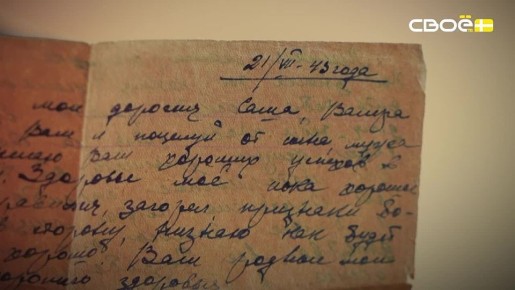 СВОЁ
21/VII-43 года
мои дорогие Саша, Валера
Вам и поцелуй от сына, мужа
желаю Вам хороших успехов в
Здоровье моё пока хорошее
загорел признаки
сторону, незнаю как будет
хорошо. Вам родные мои
хорошего здоровья